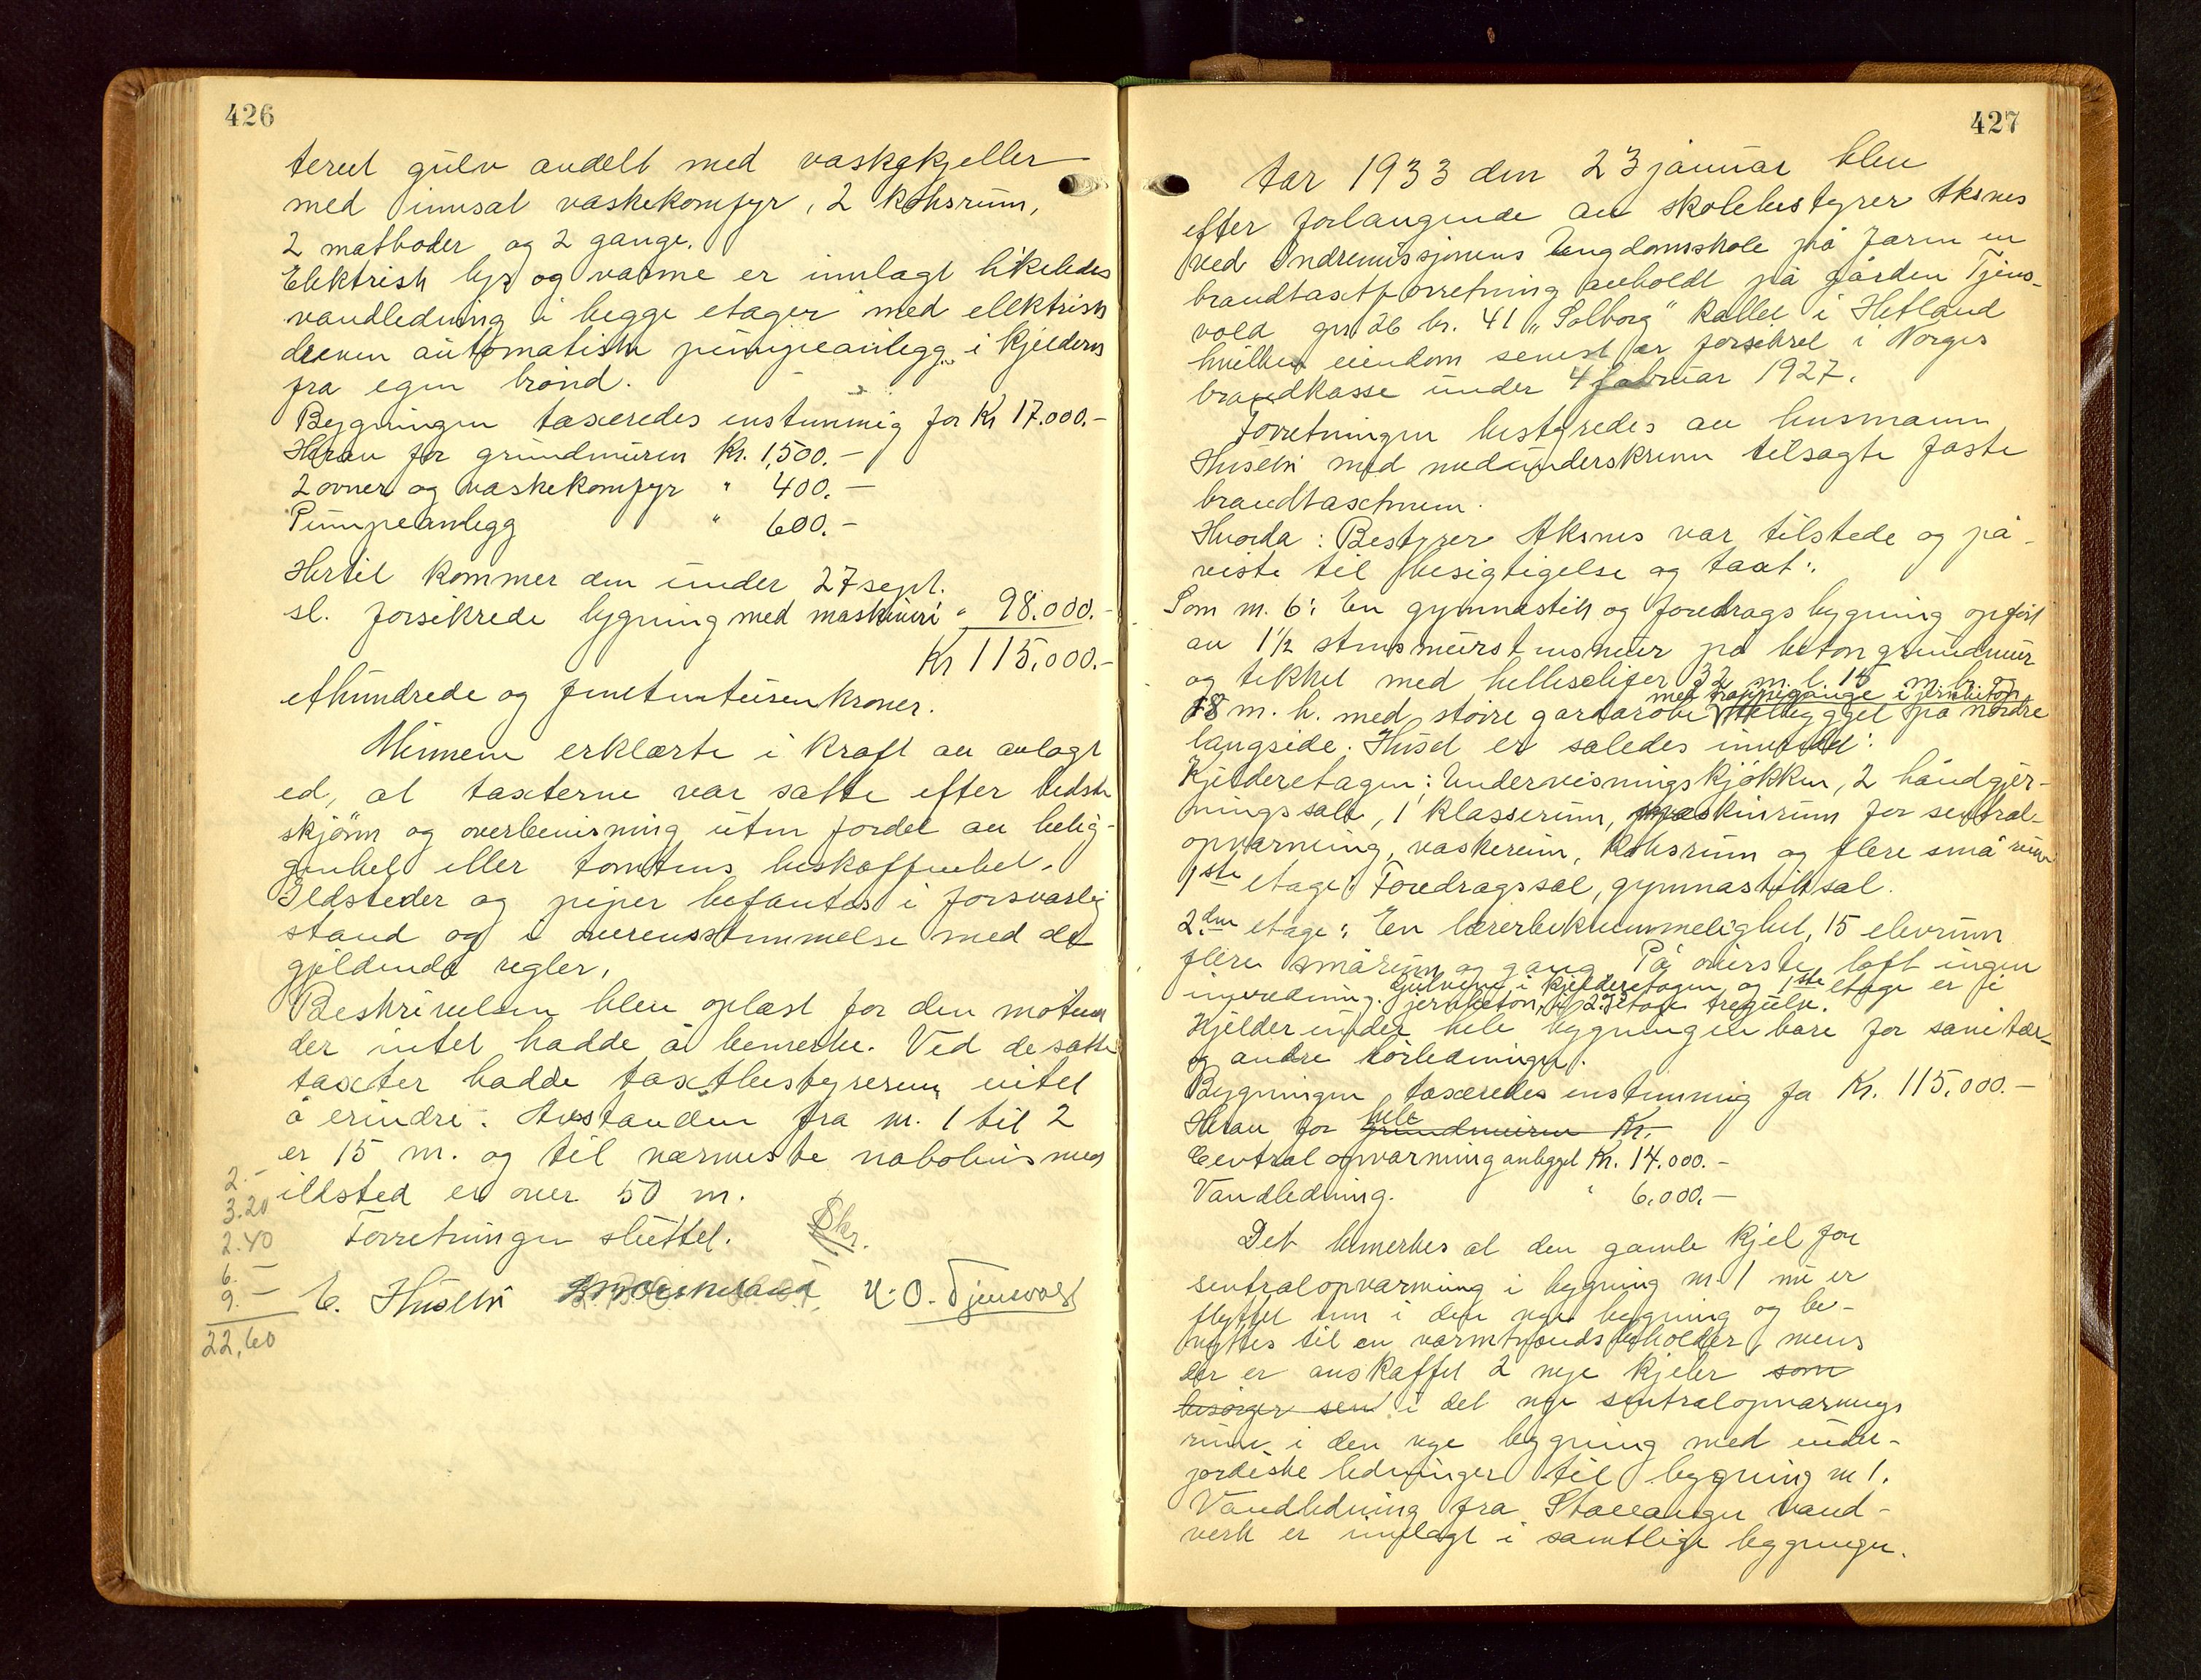 426
teret gulv avdelt med vaskekjeller
med innsat vaskekomfyr, 2 koksrum,
2 matboder og 2 gange.
Elektrisk lys og varme er innlagt likeledes
vandledning i begge etager med elektrisk
dreven automatisk pumpeanlegg i kjelderen
fra egen brønd.
Bygningen taxeredes enstemmig for Kr 17.000.-
Herav for grundmuren Kr. 1,500.-
2 ovner og vaskekomfyr " 400.-
Pumpeanlegg " 600.-
Hertil kommer den under 27 sept.
sl. forsikrede bygning med maskineri " 98.000.-
Kr 115.000.-
ethundrede og femtentusen kroner.
Mennene erklærte i kraft av avlagt
ed, at taxterne var satte efter bedste
skjønn og overbevisning uten fordel av belig-
genhet eller tomtens beskaffenhet.
Ildsteder og piper befantes i forsvarlig
stand og i overensstemmelse med de
gjeldende regler.
Beskrivelsen blev oplæst for den møtende
der intet hadde å bemerke. Ved de satte
taxter hadde taxtbestyreren intet
å erindre. Avstanden fra nr. 1 til 2
er 15 m. og til nærmeste nabohus med
ildsted er over 50 m.
Forretningen sluttet. Skr.
2.-
3.20
2.40
6.-
9.-
22,60
E. Husebø U. O. Tjensvold
427
År 1933 den 23 januar blev
efter forlangende av skolebestyrer Aksnes
ved Indremissjonens Ungdomsskole på Jæren en
brandtaxtforretning avholdt på gården Tjens-
vold gnr 26 br. 41 "Solborg" kallet i Hetland
hvilken eiendom senest er forsikret i Norges
brandkasse under 4 februar 1927.
Forretningen bestyredes av lensmann
Husebø med nedunderskrevne tilsagte faste
brandtaxtmenn.
Hvorda: Bestyrer Aksnes var tilstede og på-
viste til besigtigelse og taxt:
Som nr. 6: En gymnastik og foredragsbygning opført
av 1½ stens murstensmur på betongrundmur
og tekket med helleskifer 32 m. l. 15 m. br. og
med trappegange i jernbeton
18 m. h. med større garderobe tilbygget på nordre
langside. Huset er således innredet:
Kjelderetagen: Undervisningskjøkken, 2 håndgjer-
ningssale, 1 klasserum, maskinrum for sentral-
opvarming, vaskerum, koksrum og flere små rum
1ste etage: Foredragssal, gymnastiksal.
2.den etage: En lærerbekvemmelighet, 15 elevrum
flere smårum og gang. På øverste loft ingen
innredning. Gulvene i kjelderetagen og 1ste etage er i
jernbeton, i 2. etage tregulv.
Kjelder under hele bygningen bare for sanitær-
og andre rørledninger.
Bygningen taxeredes enstemmig for Kr. 115,000.-
Herav for hele grundmuren Kr.
Centralopvarminganlegget Kr. 14.000.-
Vandledning. " 6.000.-
Det bemerkes at den gamle kjel for
sentralopvarming i bygning nr. 1 nu er
flyttet inn i den nye bygning og be-
nyttes til en varmtvandsbeholder, mens
der er anskaffet 2 nye kjeler som
besørger sen i det nye sentralopvarmings
rum i den nye bygning med under-
jordiske ledninger til bygning nr 1.
Vandledning fra Stavanger vand-
verk er innlagt i samtlige bygninger.